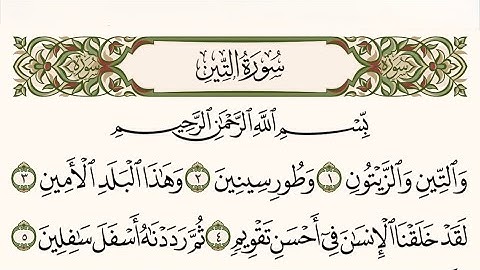 سُورَةُ التِّينِ
بِسْمِ ٱللَّهِ ٱلرَّحْمَٰنِ ٱلرَّحِيمِ
وَٱلتِّينِ وَٱلزَّيْتُونِ ١ وَطُورِ سِينِينَ ٢ وَهَٰذَا ٱلْبَلَدِ ٱلْأَمِينِ ٣
لَقَدْ خَلَقْنَا ٱلْإِنسَٰنَ فِىٓ أَحْسَنِ تَقْوِيمٍ ٤ ثُمَّ رَدَدْنَٰهُ أَسْفَلَ سَٰفِلِينَ ٥